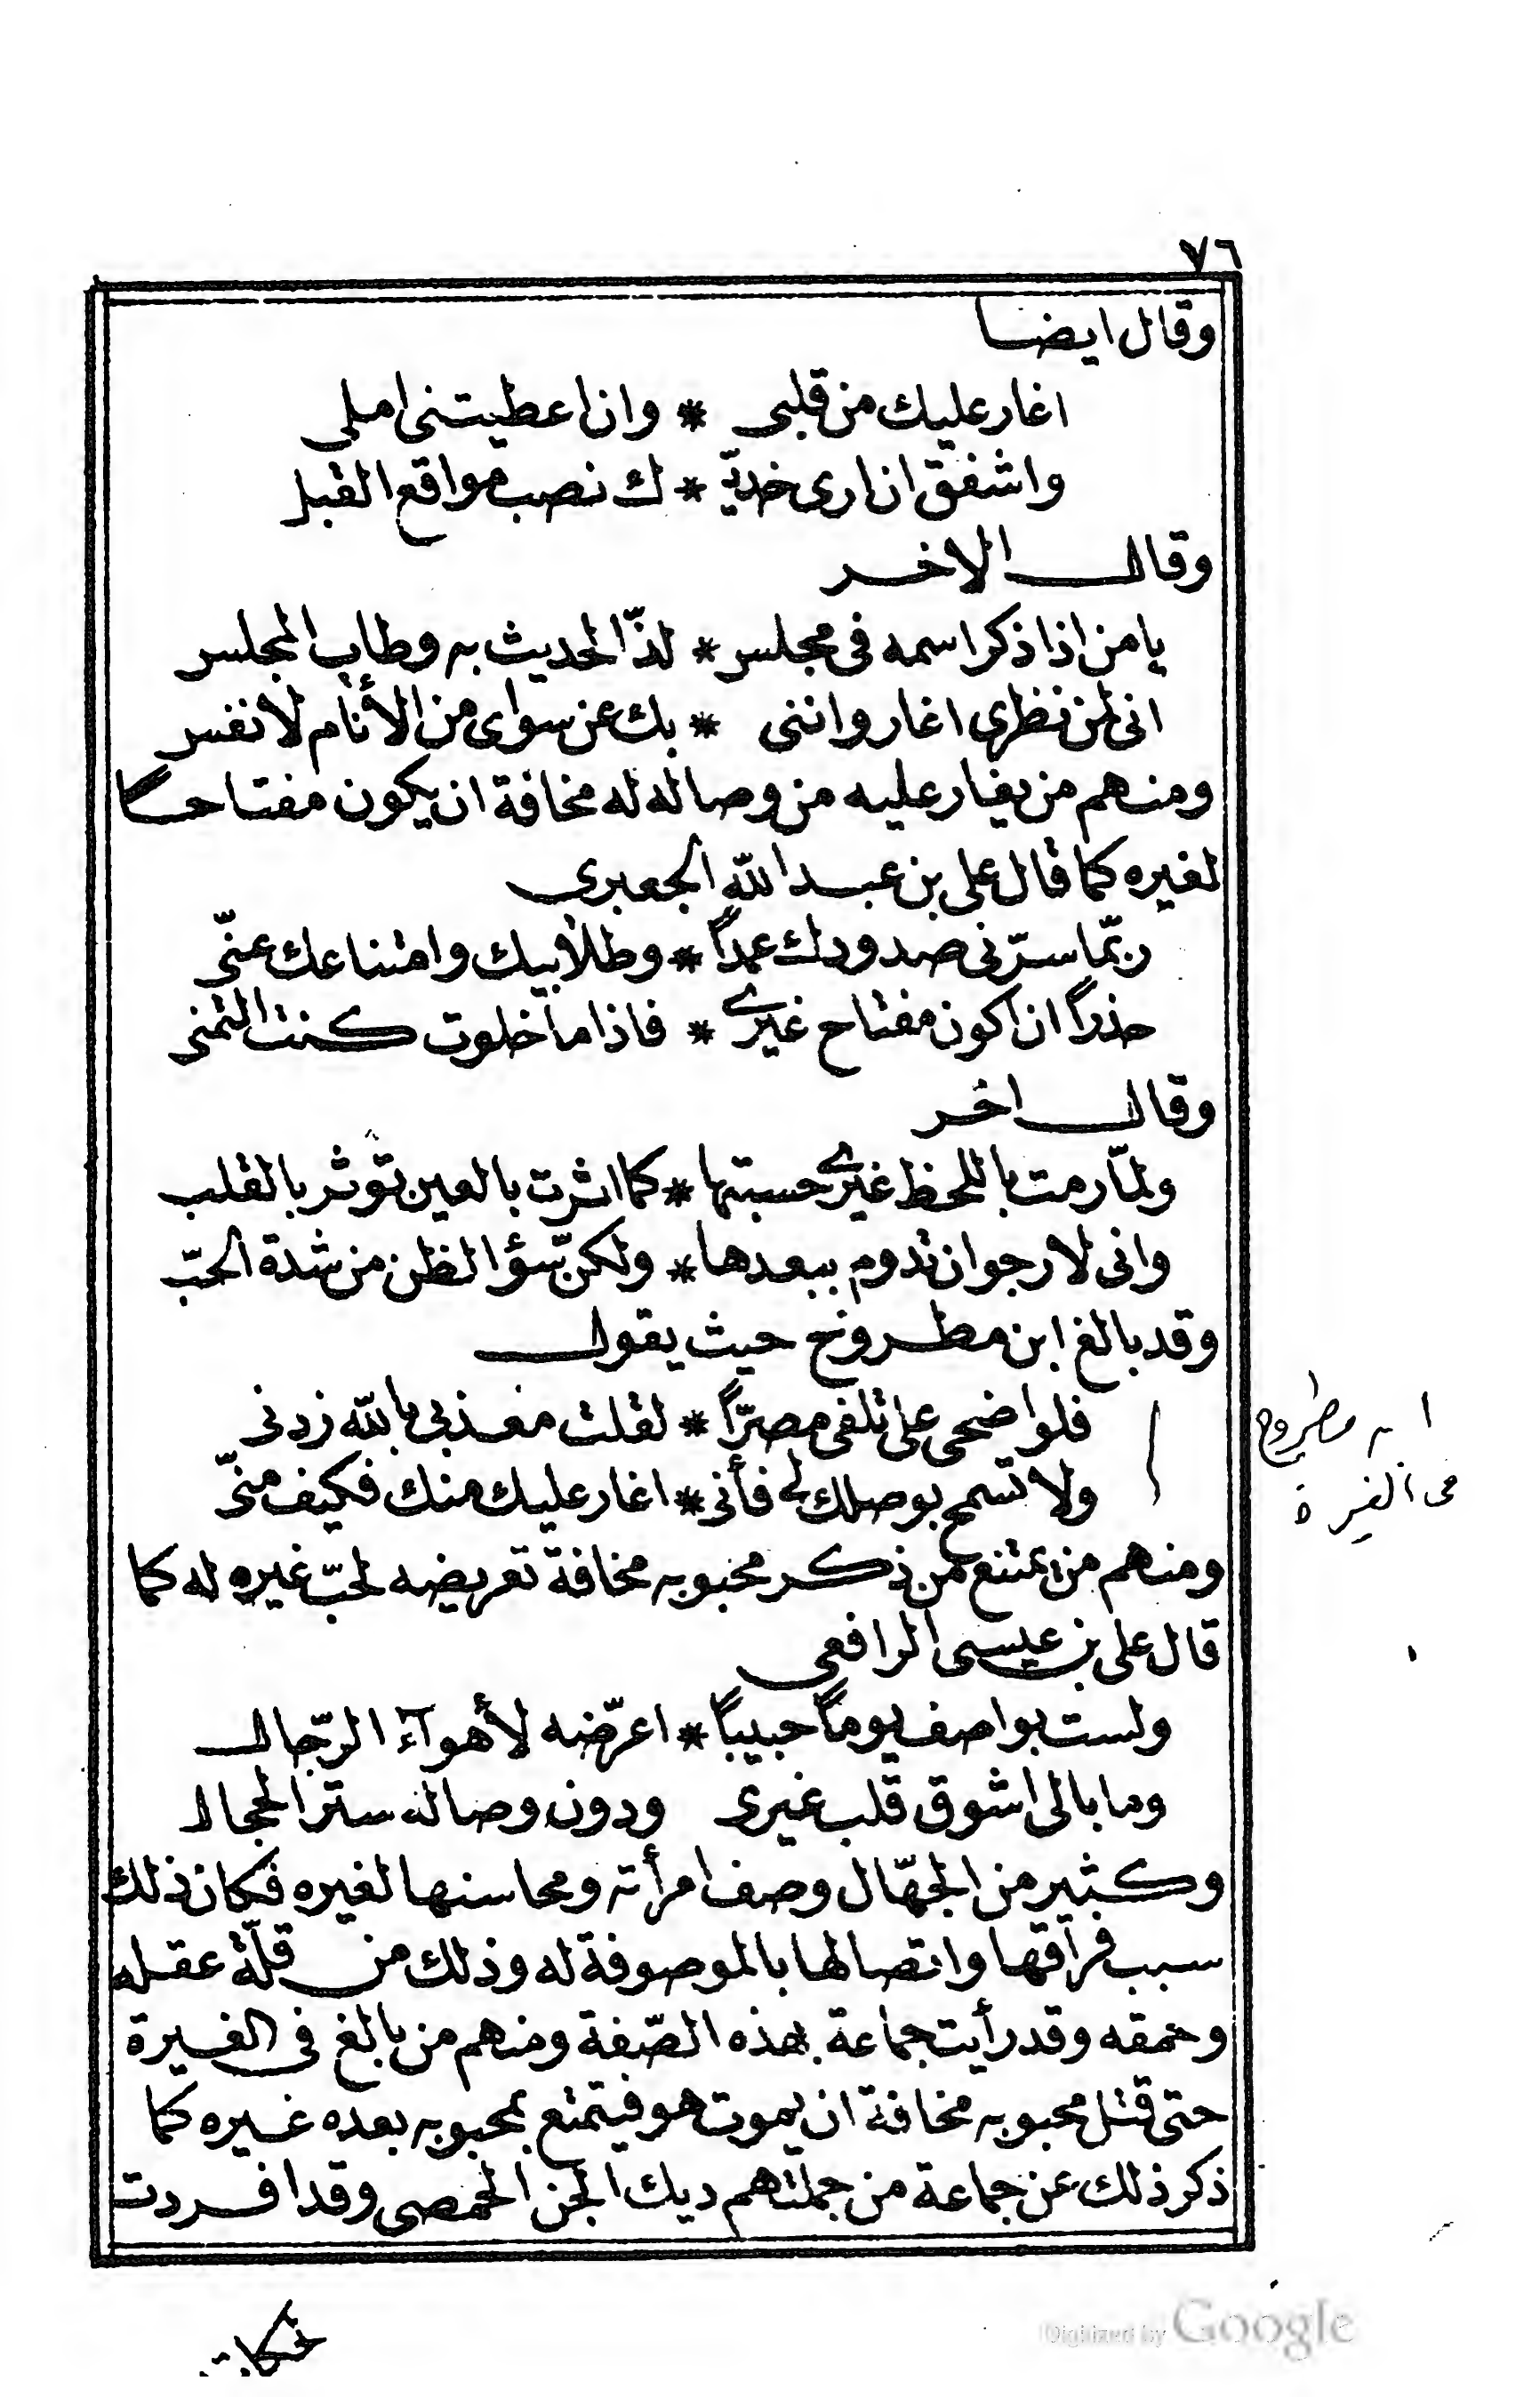 ٧٦
وقال ايضا
اغار عليك من قلبى * وان اعطيتنى املى
واشفق ان ارى خديّ * ك نصب مواقع القبل
وقال الاخر
يا من اذا ذكر اسمه فى مجلس * لذّ الحديث به وطاب المجلس
انى لمن نظرى اغار واننى * بك عن سواى من الأنام لانفس
ومنهم من يغار عليه من وصاله له مخافة ان يكون مفتاحاً
لغيره كما قال على بن عبد الله الجعبرى
ربّما سرّنى صدودك عمداً * وطلابيك وامتناعك عنّى
حذراً ان اكون مفتاح غيرى * فاذا ما خلوت كنت التمنى
وقال اخر
ولمّا رمت باللحظ غيرى حسبتها * كما اثرت بالعين تؤثر بالقلب
وانى لارجو ان تدوم ببعدها * ولكنّ سؤ الظن من شدة الحبّ
وقد بالغ ابن مطروح حيث يقول
فلو اضحى على تلفى مصرّاً * لقلت معذبى بالله زدنى
ولا تسمح بوصلك لى فأنى * اغار عليك منك فكيف منّى
ابن مطروح
فى الغيرة
ومنهم من يمتنع من ذكر محبوبه مخافة تعريضه لحبّ غيره له كما
قال على بن عيسى الرافعى
ولست بواصف يوماً حبيباً * اعرّضه لأهوآء الرّجال
وما بالى اشوق قلب غيرى ودون وصاله ستر الحجال
وكثير من الجهّال وصف امرأته ومحاسنها لغيره فكان ذلك
سبب فراقها واتصالها بالموصوفة له وذلك من قلّة عقله
وحمقه وقد رأيت جماعة بهذه الصّفة ومنهم من بالغ فى الغيرة
حتى قتل محبوبه مخافة ان يموت هو فيتمتع بمحبوبه بعده غيره كما
ذكر ذلك عن جماعة من جملتهم ديك الجن الحمصى وقد افردت
Digitized by Google